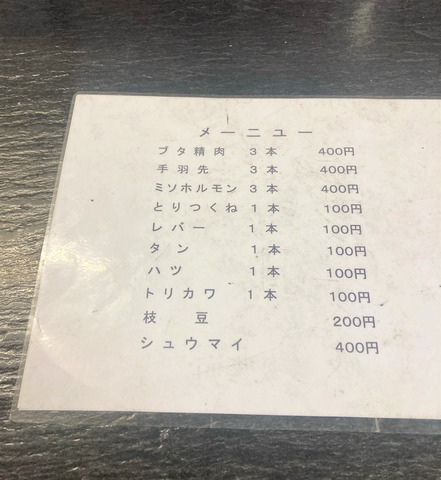 メーニュー
ブタ精肉 3本 400円
手羽先 3本 400円
ミソホルモン 3本 400円
とりつくね 1本 100円
レバー 1本 100円
タン 1本 100円
ハツ 1本 100円
トリカワ 1本 100円
枝豆 200円
シュウマイ 400円